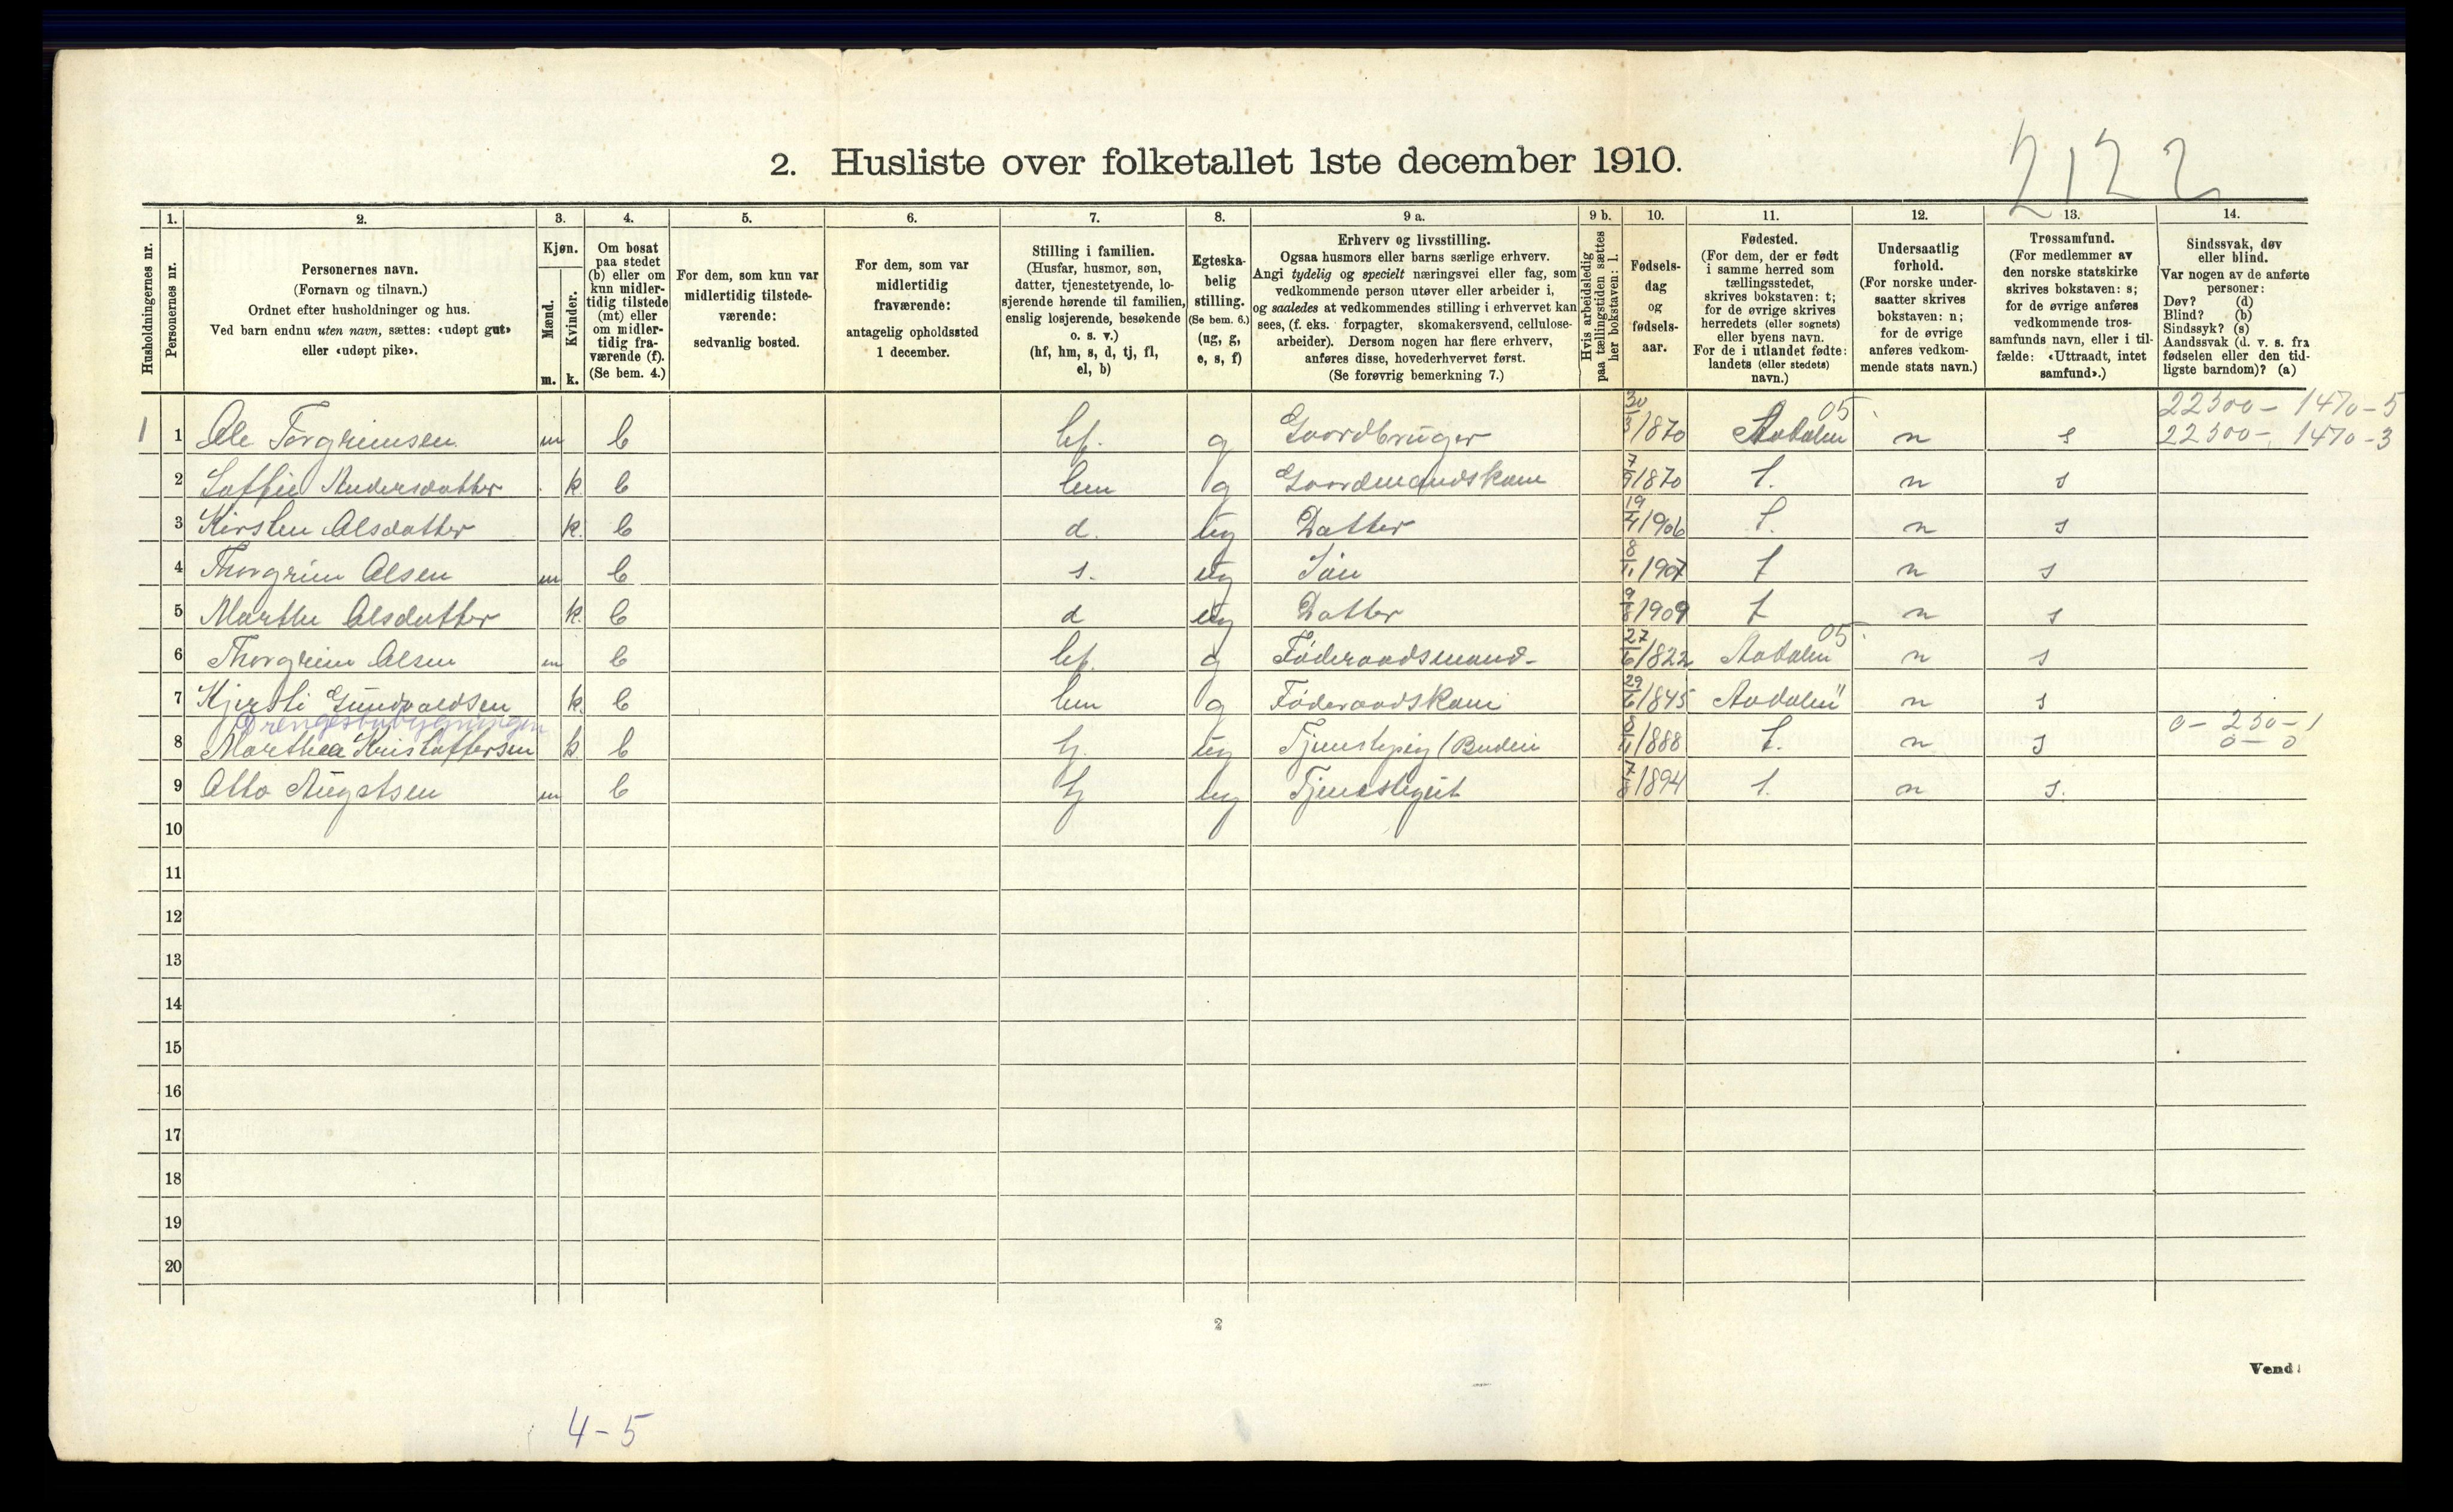 2122
2. Husliste over folketallet 1ste december 1910.
Husholdningernes nr.
1. Personernes nr.
2. Personernes navn. (Fornavn og tilnavn.) Ordnet efter husholdninger og hus. Ved barn endnu uten navn, sættes: «udøpt gut» eller «udøpt pike».
3. Kjøn. Mænd. m. Kvinder. k.
4. Om bosat paa stedet (b) eller om kun midler-tidig tilstede (mt) eller om midler-tidig fra-værende (f). (Se bem. 4.)
5. For dem, som kun var midlertidig tilstede-værende: sedvanlig bosted.
6. For dem, som var midlertidig fraværende: antagelig opholdssted 1 december.
7. Stilling i familien. (Husfar, husmor, søn, datter, tjenestetyende, lo-sjerende hørende til familien, enslig losjerende, besøkende o. s. v.) (hf, hm, s, d, tj, fl, el, b)
8. Egteska-belig stilling. (Se bem. 6.) (ug, g, e, s, f)
9 a. Erhverv og livsstilling. Ogsaa husmors eller barns særlige erhverv. Angi tydelig og specielt næringsvei eller fag, som vedkommende person utøver eller arbeider i, og saaledes at vedkommendes stilling i erhvervet kan sees, (f. eks. forpagter, skomakersvend, cellulose-arbeider). Dersom nogen har flere erhverv, anføres disse, hovederhvervet først. (Se forøvrig bemerkning 7.)
9 b. Hvis arbeidsledig paa tællingstiden sættes her bokstaven: l.
10. Fødsels-dag og fødsels-aar.
11. Fødested. (For dem, der er født i samme herred som tællingsstedet, skrives bokstaven: t; for de øvrige skrives herredets (eller sognets) eller byens navn. For de i utlandet fødte: landets (eller stedets) navn.)
12. Undersaatlig forhold. (For norske under-saatter skrives bokstaven: n; for de øvrige anføres vedkom-mende stats navn.)
13. Trossamfund. (For medlemmer av den norske statskirke skrives bokstaven: s; for de øvrige anføres vedkommende tros-samfunds navn, eller i til-fælde: «Uttraadt, intet samfund».)
14. Sindssvak, døv eller blind. Var nogen av de anførte personer: Døv? (d) Blind? (b) Sindssyk? (s) Aandssvak (d. v. s. fra fødselen eller den tid-ligste barndom)? (a)
22300 - 1470 - 5
1 1 Ole Torgrimsen m b hf. g Gaardbruger 30/3 1870 Aadalen 05 n s 22300 - 1470 - 3
2 Andersdatter k b hm g Gaardmandskone 7/9 1870 t. n s
3 Kirsten Olsdatter k. b d. ug Datter 19/4 1906 t. n s
4 Thorgrim Olsen m b s. ug Søn 8/11 1907 t n s
5 Marthe Olsdatter k. b d ug Datter 9/8 1909 t n s
6 Thorgrim Olsen m b hf. g Føderaadsmand- 27/6 1822 Aadalen 05 n s
7 Kjersti Gundvaldsen k. b hm g Føderaadskone 29/6 1845 Aadalen " n s
Drengestubygningen 0 - 250 - 1
8 Marthea Kristoffersen k. b tj. ug Tjenestepig (Budeie 8/11 1888 t. n s 0 - 0
9 Otto Augstsen m b tj ug Tjenestegut 7/8 1894 t. n s.
10
11
12
13
14
15
16
17
18
19
20
2
Vend!
4-5